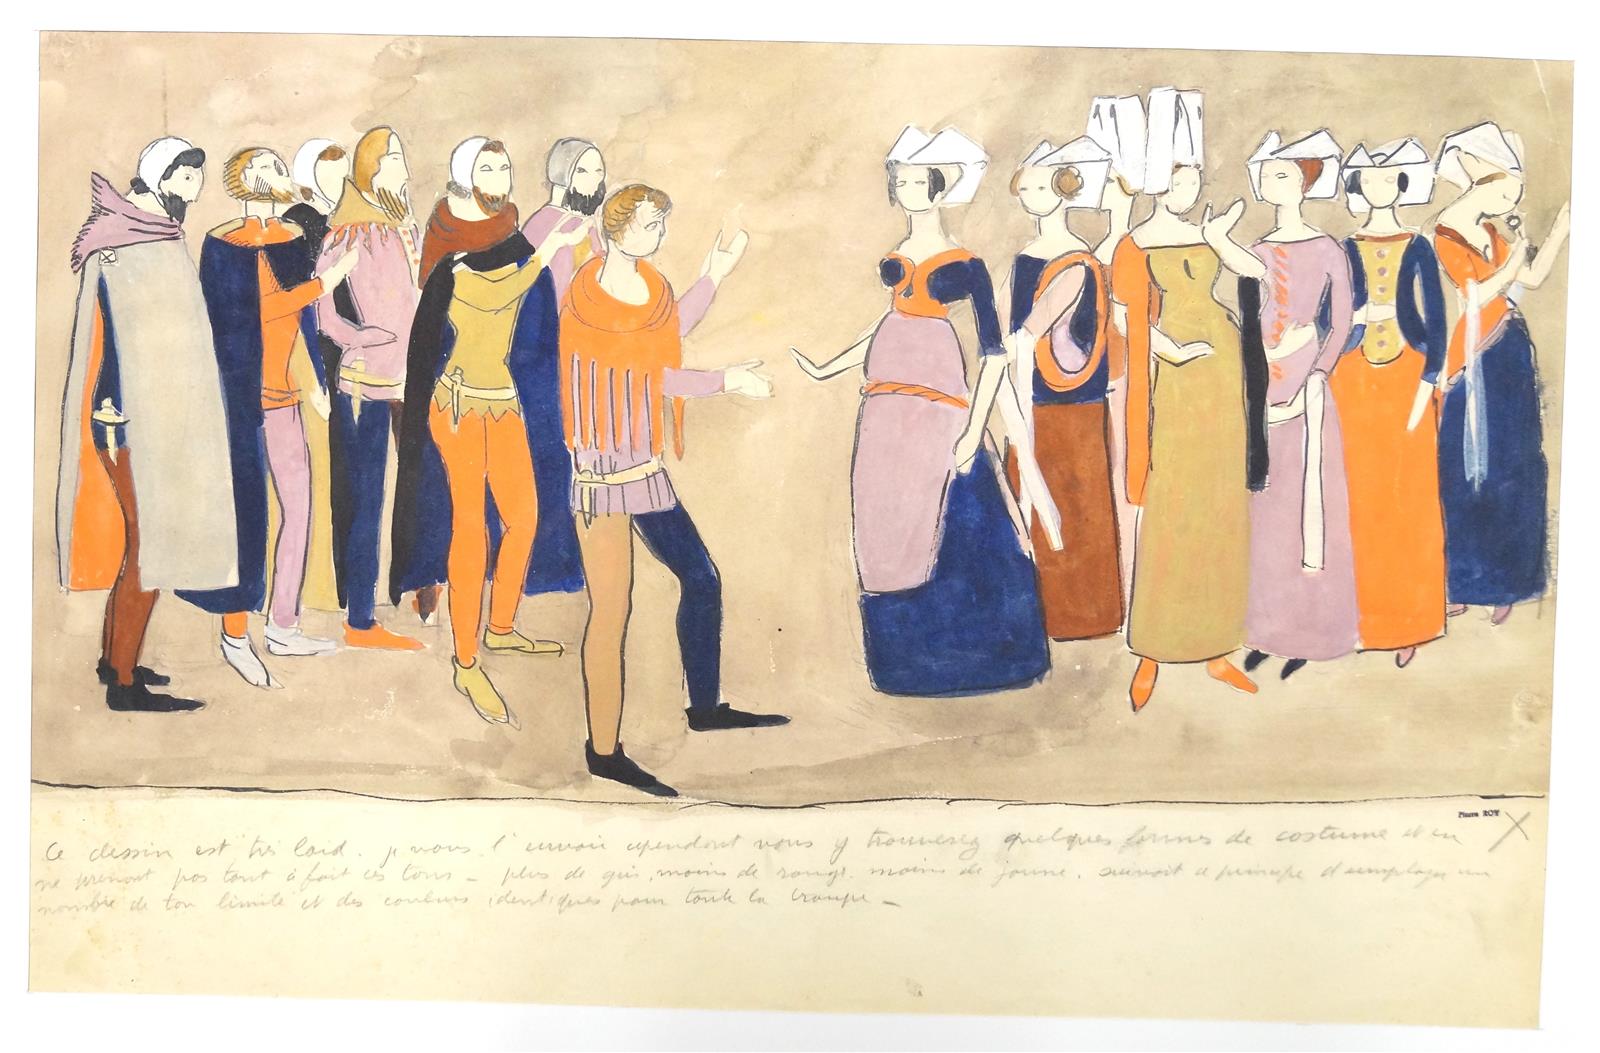 Pierre ROY
Ce dessin est très laid. je vous l'envoie cependant vous y trouverez quelques formes de costume et en
ne prenant pas tout à fait ces tons - plus de gris, moins de rouge. moins de jaune. suivant le principe d'employer un
nombre de ton limité et des couleurs identiques pour toute la troupe -